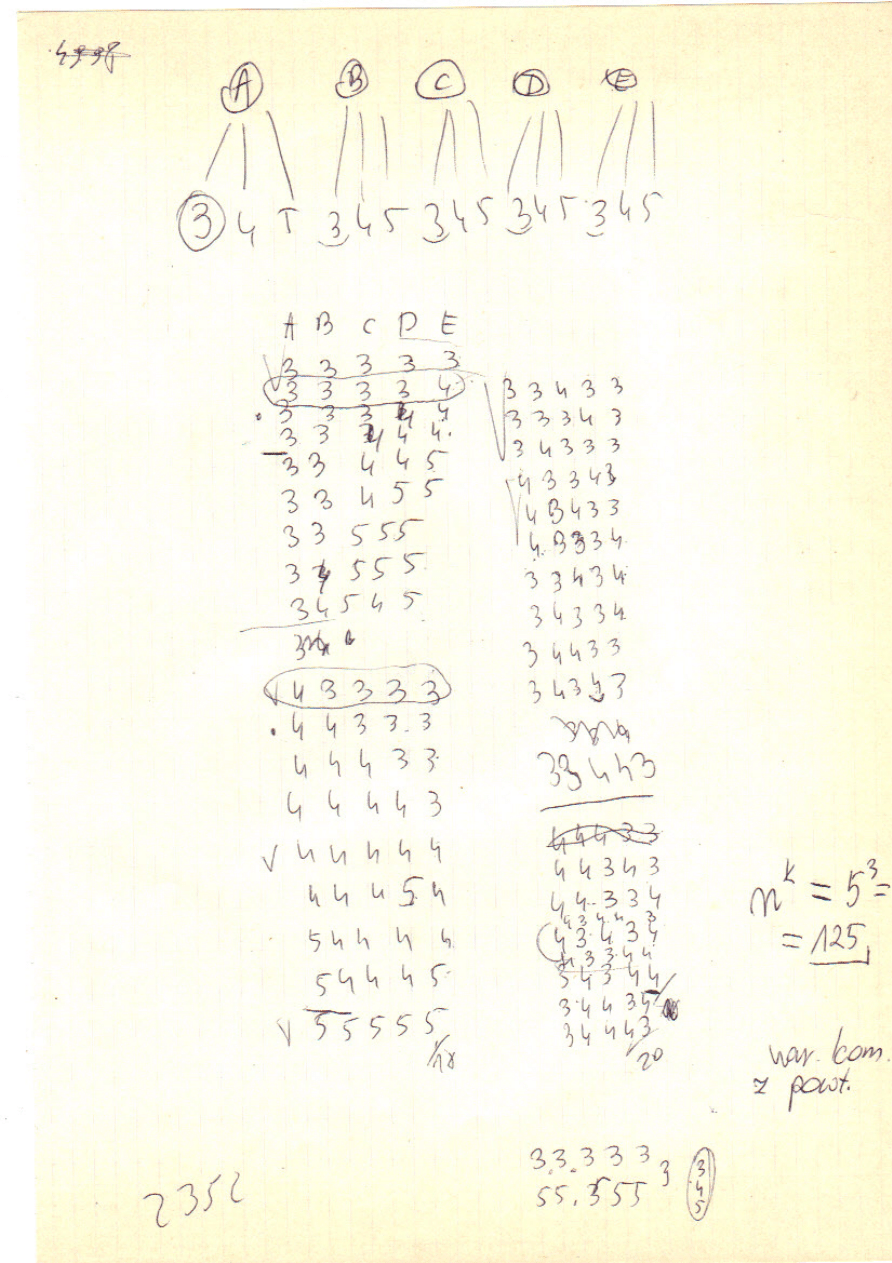 A B C D E
3 4 5 3 4 5 3 4 5 3 4 5 3 4 5
A B C D E
3 3 3 3 3
3 3 3 3 4
3 3 3 4 4
3 3 4 4 4
3 3 4 4 5
3 3 4 5 5
3 3 5 5 5
3 4 5 5 5
3 4 5 4 5
4 3 3 3 3
4 4 3 3 3
4 4 4 3 3
4 4 4 4 3
4 4 4 4 4
4 4 4 5 4
5 4 4 4 4
5 4 4 4 5
5 5 5 5 5
/18
3 3 4 3 3
3 3 3 4 3
3 4 3 3 3
4 3 3 4 3
4 3 4 3 3
4 3 3 3 4
3 3 4 3 4
3 4 3 3 4
3 4 4 3 3
3 4 3 4 3
3 3 4 4 3
4 4 4 3 3
4 4 3 4 3
4 4 3 3 4
4 3 4 4 3
4 3 4 3 4
4 3 3 4 4
3 4 3 4 4
3 4 4 3 4
3 4 4 4 3
/20
n^k = 5^3 =
= 125
war. kom.
z powt.
3 3 3 3 3
5 5 5 5 5
3
3
4
5
2352